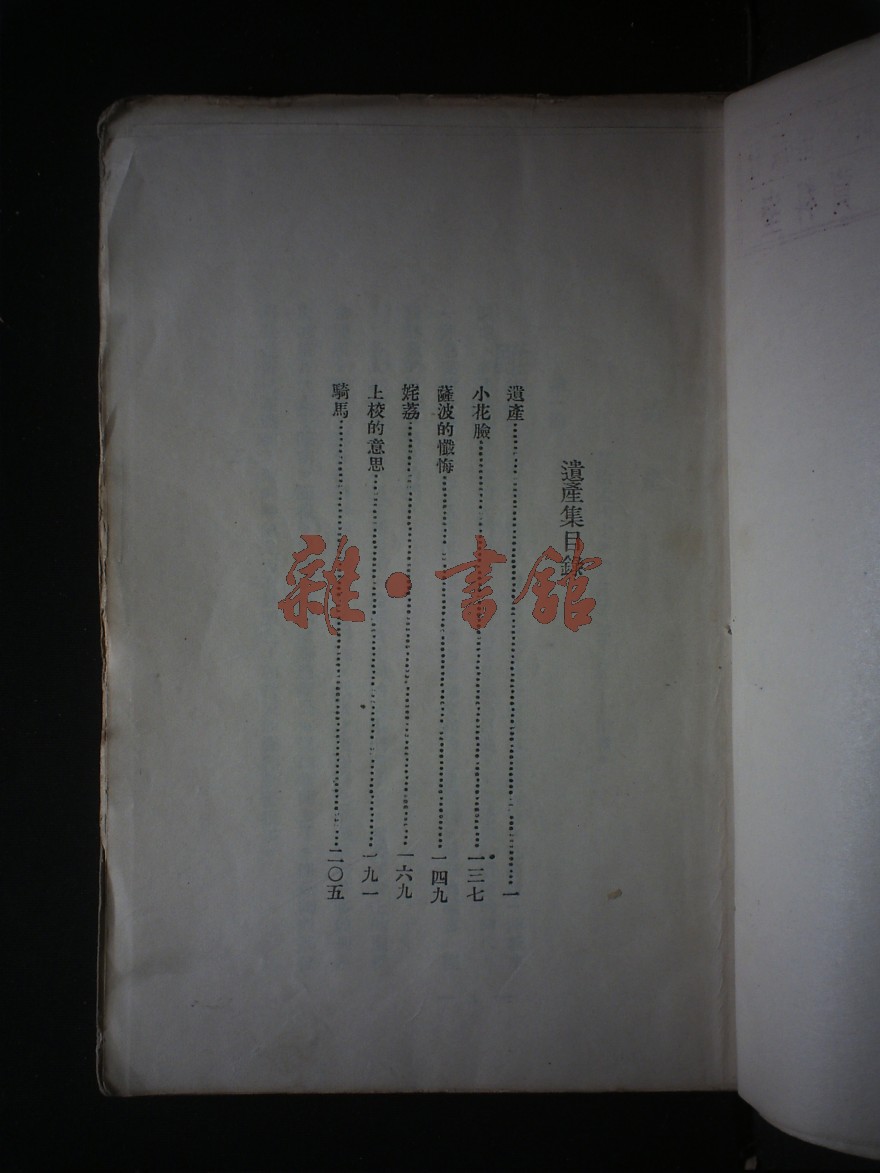 遺產集目錄
遺產……一
小花臉……一三七
薩波的懺悔……一四九
姹荔……一六九
上校的意思……一九一
騎馬……二〇五
雜·書館